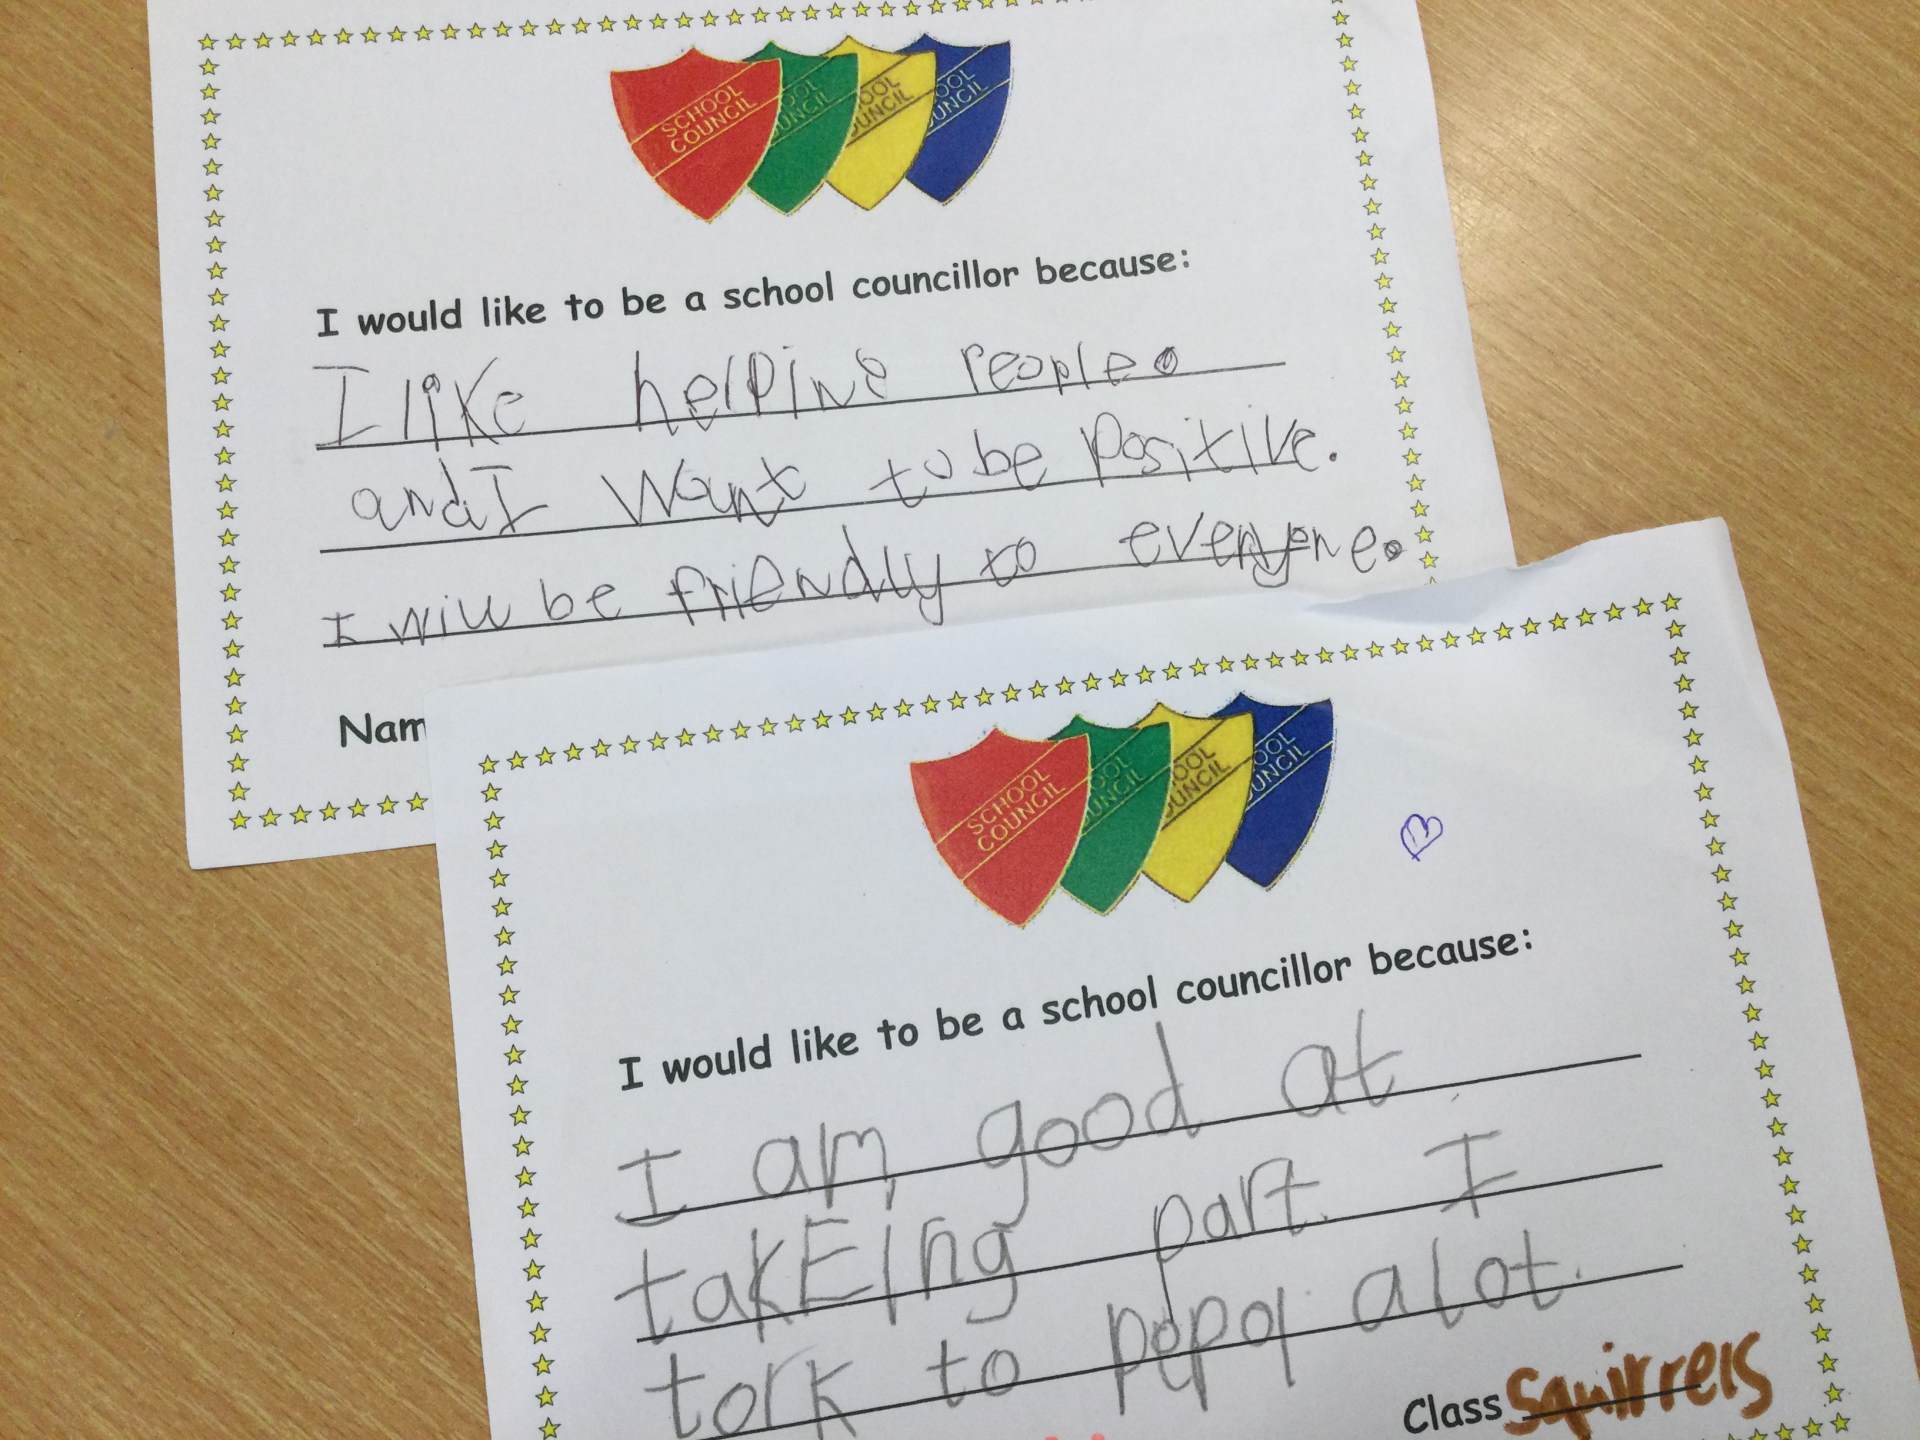 SCHOOL COUNCIL
OOL UNCIL
OOL OUNCIL
OOL OUNCIL
I would like to be a school councillor because:
I like helping people.
and I want to be positive.
I will be friendly to everyone.
Nam
SCHOOL COUNCIL
OOL UNCIL
OOL OUNCIL
OOL OUNCIL
I would like to be a school councillor because:
I am good at
takEing part. I
tork to pepol alot.
Class Squirrels